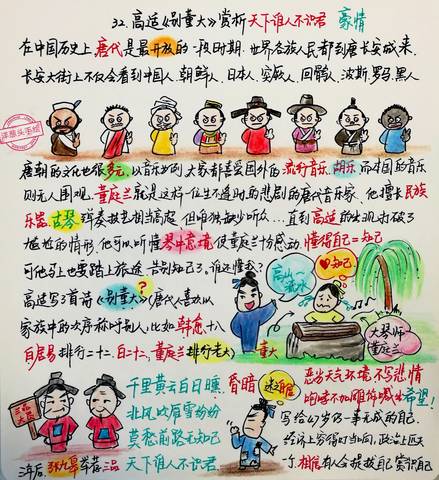 32. 高适《别董大》赏析 天下谁人不识君 豪情
在中国历史上唐代是最开放的一段时期. 世界各族人民都到唐长安城来.
长安大街上不仅会看到中国人、朝鲜人、日本人、安南人、回鹘人、波斯、罗马、黑人
洋葱头手绘
唐朝的文化也很多元. 以音乐为例. 大家都喜爱国外的流行音乐. 胡乐. 而本国的音乐
则无人围观. 董庭兰就是这样一位生不逢时的悲剧的唐代音乐家. 他擅长民族
乐器. 古琴 弹奏技艺相当高超 但唯独缺少听众... 直到高适的出现 打破了
尴尬的情形. 他可以听懂琴中意境 使董庭兰十分感动 懂得自己=知己
可他马上也要踏上旅途 告别知己了. 谁还懂我?
高适写3首诗《别董大》(唐代人喜欢以
家族中的次序称呼别人. 比如韩愈十八
白居易排行二十二. 白二十二. 董庭兰排行老大)
高山流水
知己
董大
大琴师
董庭兰
千里黄云白日曛 昏暗
北风吹雁雪纷纷
莫愁前路无知己
天下谁人不识君.
恶劣天气环境. 不写悲情
希望!
写给47岁仍一事无成的自己.
三年后. 张九皋举荐